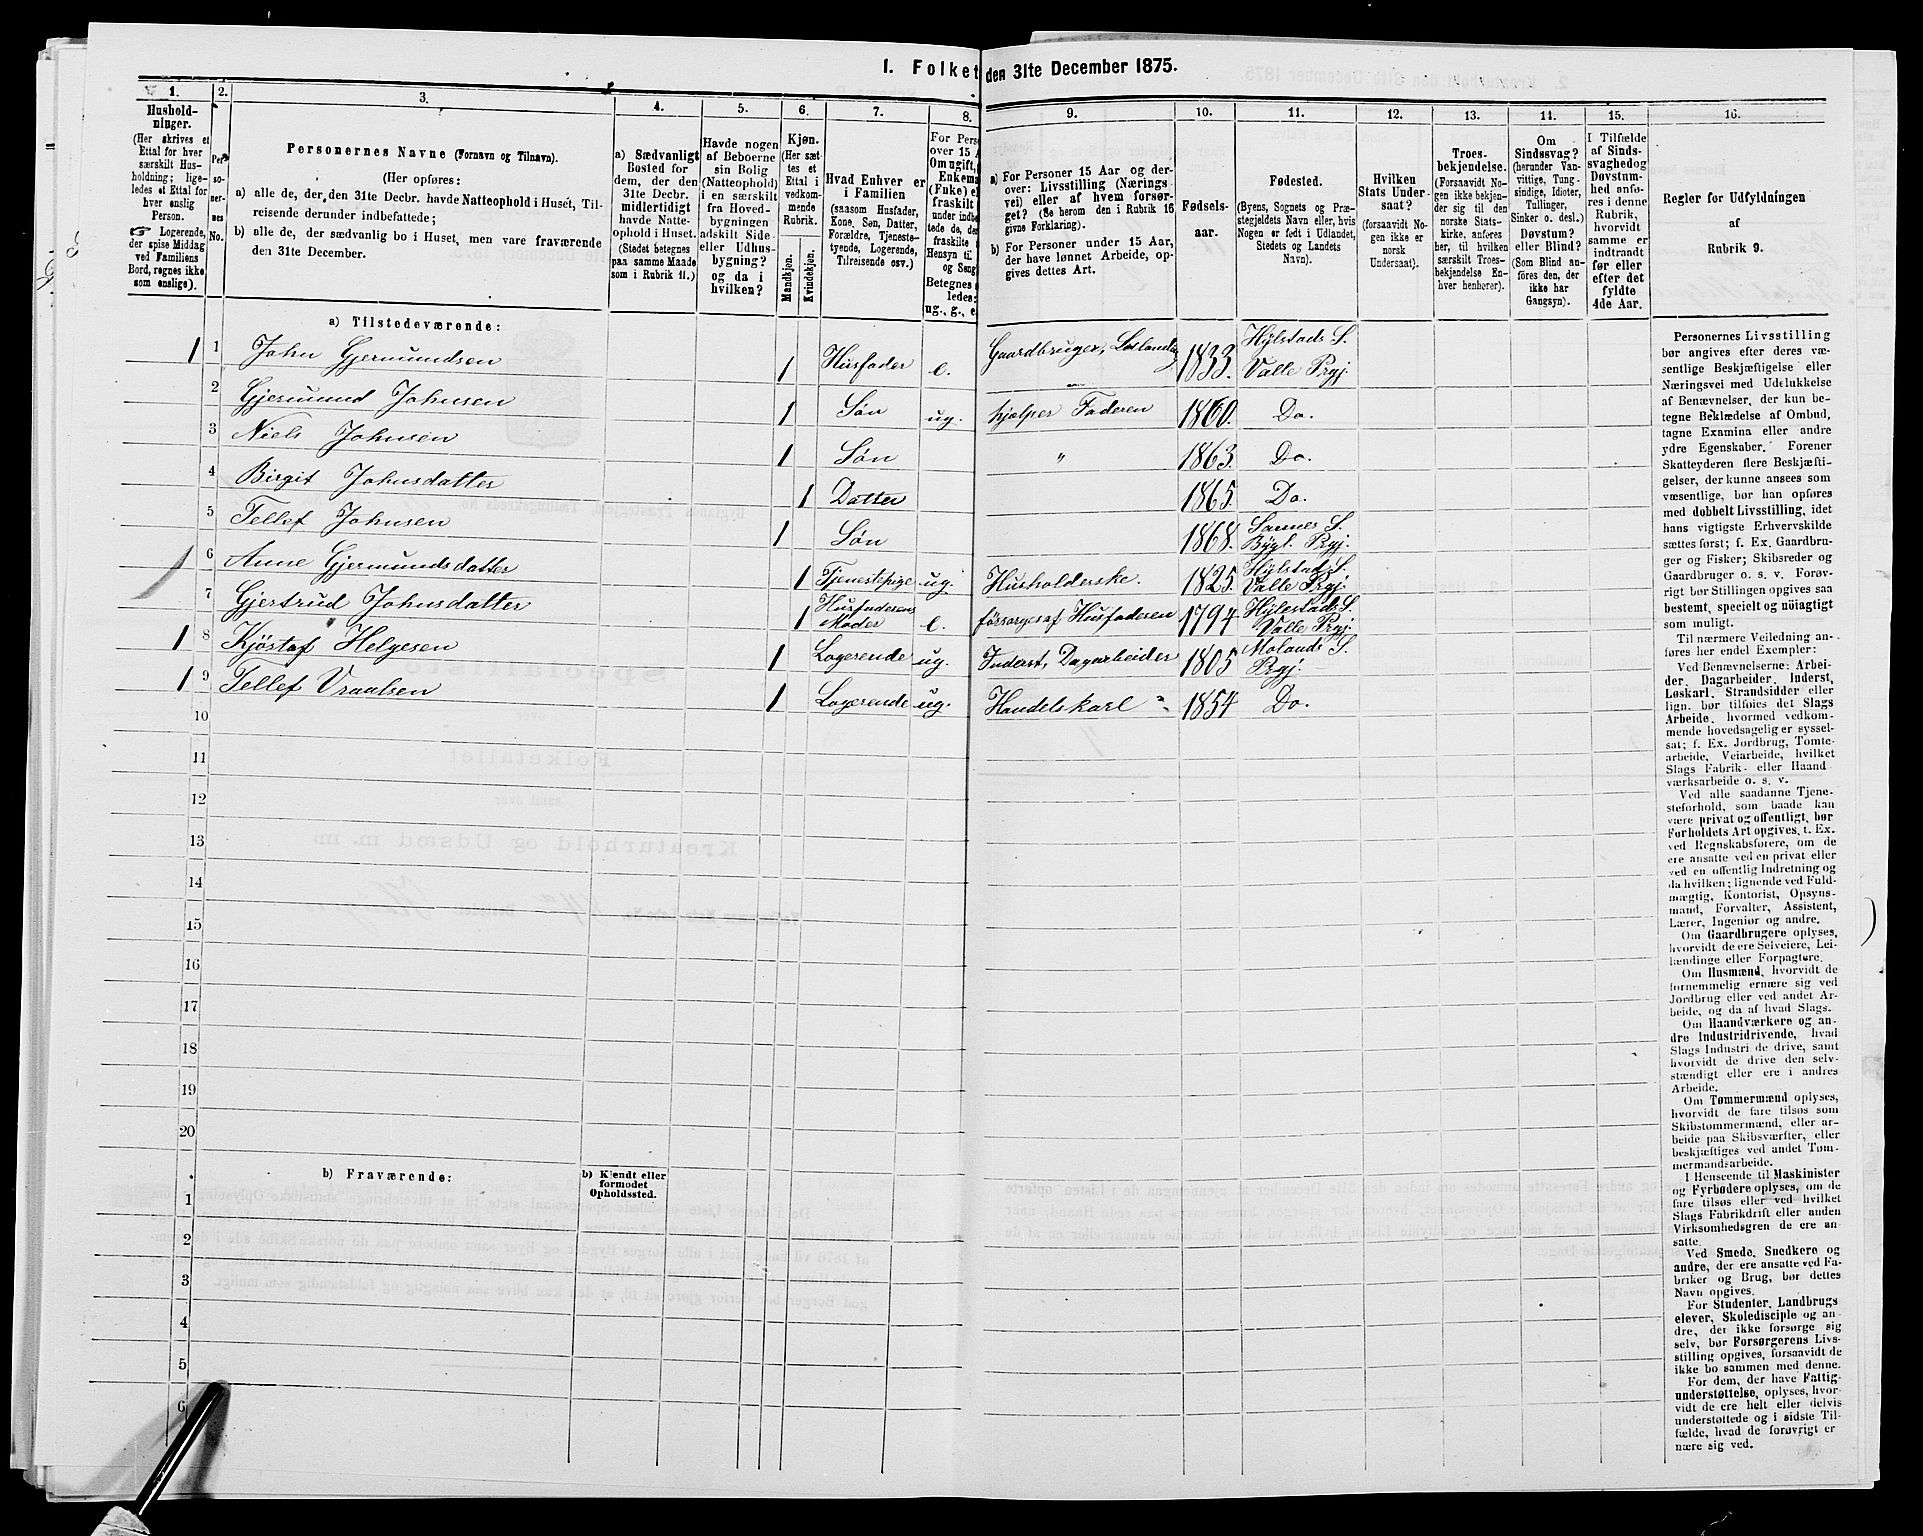 1. Folket den 31te December 1875.
1. 2. 3. 4. 5. 6. 7. 8. 9. 10. 11. 12. 13. 14. 15. 16.
Hushold-
ninger.
(Her skrives et
Ettal for hver
særskilt Hus-
holdning; lige-
ledes et Ettal for
hver enslig
Person.
☞ Logerende,
der spise Middag
ved Familiens
Bord, regnes ikke
som enslige).
Per-
so-
ner-
nes
No.
Personernes Navne (Fornavn og Tilnavn).
(Her opføres:
a) alle de, der den 31te Decbr. havde Natteophold i Huset, Til-
reisende derunder indbefattede;
b) alle de, der sædvanlig bo i Huset, men vare fraværende
den 31te December.
a) Sædvanligt
Bosted for
dem, der den
31te Decbr.
midlertidigt
havde Natte-
ophold i Huset.
(Stedet betegnes
paa samme Maade
som i Rubrik 11.)
Havde nogen
af Beboerne
sin Bolig
(Natteophold)
i en særskilt
fra Hoved-
bygningen
adskilt Side-
eller Udhus-
bygning?
og da i
hvilken?
Kjøn.
(Her sæt-
tes et
Ettal i
vedkom-
mende
Rubrik.
Mandkjøn.
Kvindekjøn.
Hvad Enhver er
i Familien
(saasom Husfader,
Kone, Søn, Datter,
Forældre, Tjeneste-
tyende, Logerende,
Tilreisende osv.).
For Perso
over 15 A
Om ugift,
Enkema
(Fuke) el
under indbe
tede de, de
fraskilte
Hensyn til
og Seng
Betegnes
ledes:
ug., g., e
a) For Personer 15 Aar og der-
over: Livsstilling (Nærings-
vei) eller af hvem forsør-
get? (Se herom den i Rubrik 16
givne Forklaring).
b) For Personer under 15 Aar,
der have lønnet Arbeide, op-
gives dettes Art.
Fødsels-
aar.
Fødested.
(Byens, Sognets og Præ-
stegjeldets Navn eller, hvis
Nogen er født i Udlandet,
Stedets og Landets
Navn).
Hvilken
Stats Under-
saat?
(forsaavidt No-
gen ikke er
norsk
Undersaat).
Troes-
bekjendelse.
(Forsaavidt No-
gen ikke bekjen-
der sig til den
norske Stats-
kirke, anføres
her, til hvilken
særskilt Troes-
bekjendelse En-
hver henhører).
Om
Sindssvag?
(herunder Van-
vittige, Tung-
sindige, Idioter,
Tullinger,
Sinker o. desl.)
Døvstum?
eller Blind?
(Som Blind an-
føres den, der
ikke har
Gangsyn).
I Tilfælde
af Sinds-
svaghed og
Døvstum-
hed anfø-
res i denne
Rubrik,
hvorvidt
samme er
indtraadt
før eller
efter det
fyldte
4de Aar.
Regler for Udfyldningen
af
Rubrik 9.
a) Tilstedeværende:
1 1 John Gjermundsen 1 Husfader e. Gaardbruger, Leilænding 1833. Hylestads S. Valle Prgj.
2 Gjermund Johnsen 1 Søn ug. hjælper Faderen 1860. Do.
3 Niels Johnsen 1 Søn " 1863. Do.
4 Birgit Johnsdatter 1 Datter 1865. Do.
5 Tellef Johnsen 1 Søn 1868. Sannes S. Bygl. Prgj.
1 6 Anne Gjermundsdatter 1 Tjenestepige ug. Husholderske. 1825. Hylestads S. Valle Prgj.
7 Gjertrud Johnsdatter 1 Husfaderens Moder e. forsørges af Husfaderen 1794 Hylestads S. Valle Prgj.
1 8 Kjöstaf Helgesen 1 Logerende ug. Inderst, Dagarbeider 1805 Molands S. Prgj.
1 9 Tellef Vraalsen 1 Logerende ug. Handelskarl 1854 Do.
10
11
12
13
14
15
16
17
18
19
20
b) Fraværende:
b) Kjendt eller
formodet
Opholdssted.
1
2
3
4
5
6
Personernes Livsstilling
bør angives efter deres væ-
sentlige Beskjæftigelse eller
Næringsvei med Udelukkelse
af Benævnelser, der kun be-
tegne Beklædelse af Ombud,
tagne Examina eller andre
ydre Egenskaber. Forener
Skatteyderen flere Beskjæfti-
gelser, der kunne ansees som
væsentlige, bør han opføres
med dobbelt Livsstilling, idet
hans vigtigste Erhvervskilde
sættes først; f. Ex. Gaardbru-
ger og Fisker; Skibsreder og
Gaardbruger o. s. v. Forøv-
rigt bør Stillingen opgives saa
bestemt, specielt og nöiagtigt
som muligt.
Til nærmere Veiledning an-
føres her endel Exempler:
Ved Benævnelserne: Arbei-
der, Dagarbeider, Inderst,
Løskarl, Strandsidder eller
lign. bør tilføies det Slags
Arbeide, hvormed vedkom-
mende hovedsagelig er syssel-
sat; f. Ex. Jordbrug, Tomte-
arbeide, Veiarbeide, hvilket
Slags Fabrik- eller Haand-
værksarbeide o. s. v.
Ved alle saadanne Tjene-
steforhold, som baade kan
være privat og offentligt, bør
Forholdets Art opgives, t. Ex.
ved Regnskabsførere, om de
ere ansatte ved en privat eller
ved en offentlig Indretning og
da hvilken; lignende ved Fuld-
mægtig, Kontorist, Opsyns-
mand, Forvalter, Assistent,
Lærer, Ingeniør og andre.
Om Gaardbrugere oplyses,
hvorvidt de ere Selveiere, Lei-
lændinge eller Forpagtere.
Om Husmænd, hvorvidt de
fornemmelig ernære sig ved
Jordbrug eller ved andet Ar-
beide, og da af hvad Slags.
Om Haandværkere og an-
dre Industridrivende, hvad
Slags Industri de drive, samt
hvorvidt de drive den selv-
stændigt eller ere i andres
Arbeide.
Om Tømmermænd oplyses,
hvorvidt de fare tilsøs som
Skibstømmermænd, eller ar-
beide paa Skibsværfter, eller
beskjæftiges ved andet Tøm-
mermandsarbeide.
I Henseende til Maskinister
og Fyrbødere oplyses, om de
fare tilsøs eller ved hvilket
Slags Fabrikdrift eller anden
Virksomhedsgren de ere an-
satte.
Ved Smede, Snedkere og
andre, der ere ansatte ved Fa-
briker og Brug, bør dettes
Navn opgives.
For Studenter, Landbrugs
elever, Skoledisciple og an-
dre, der ikke forsørge sig
selv, bør Forsørgerens Livs-
stilling opgives, forsaavidt de
ikke bo sammen med denne.
For dem, der have Fattig-
understøttelse, oplyses, hvor-
vidt de ere helt eller delvis
understøttede og i sidste Til-
fælde, hvad de forøvrigt er
nære sig ved.